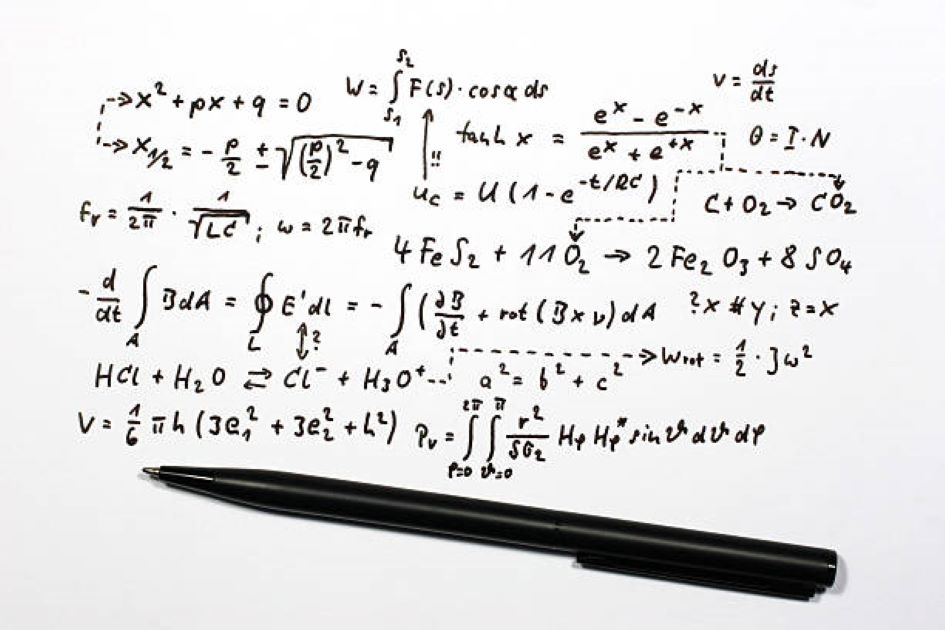 W = ∫_{s1}^{s2} F(s) · cos α ds
v = ds/dt
x² + px + q = 0
x_{1/2} = - p/2 ± √((p/2)² - q)
!!
tanh x = (e^x - e^{-x})/(e^x + e^{+x})
θ = I · N
u_C = U (1 - e^{-t/RC})
C + O₂ → CO₂
f_r = 1/2π · 1/√LC ; ω = 2πf_r
4 FeS₂ + 11 O₂ → 2 Fe₂O₃ + 8 SO₄
- d/dt ∫_A B dA = ∮_L E' dl = - ∫_A (∂B/∂t + rot (B x v) dA
?x # y ; z = x
?
HCl + H₂O ⇄ Cl⁻ + H₃O⁺
a² = b² + c²
W_rot = 1/2 · J ω²
V = 1/6 π h (3e₁² + 3e₂² + h²)
P_v = ∫_{φ=0}^{2π} ∫_{ϑ=0}^{π} r²/ H_φ H_φ* sin ϑ dϑ dφ